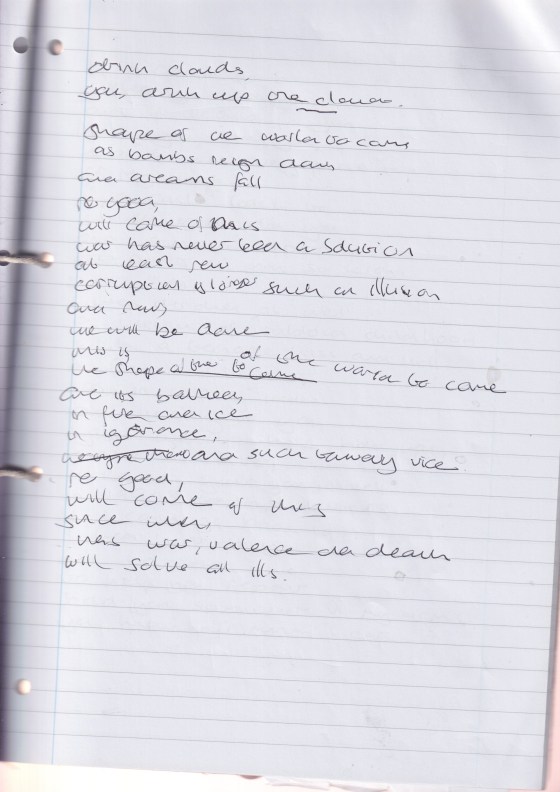 drink clouds,
you, drink up the clouds.
shape of the world to come
as bombs reign down
and dreams fall
no good,
will come of this
war has never been a solution
at least new
corruption is such an illusion
and now,
we will be done
this is
the shape of the to come of the world to come
are its
in fire and ice
in ignorance,
and such vice
no good,
will come of this
since when,
has war, violence and death
will solve all ills.